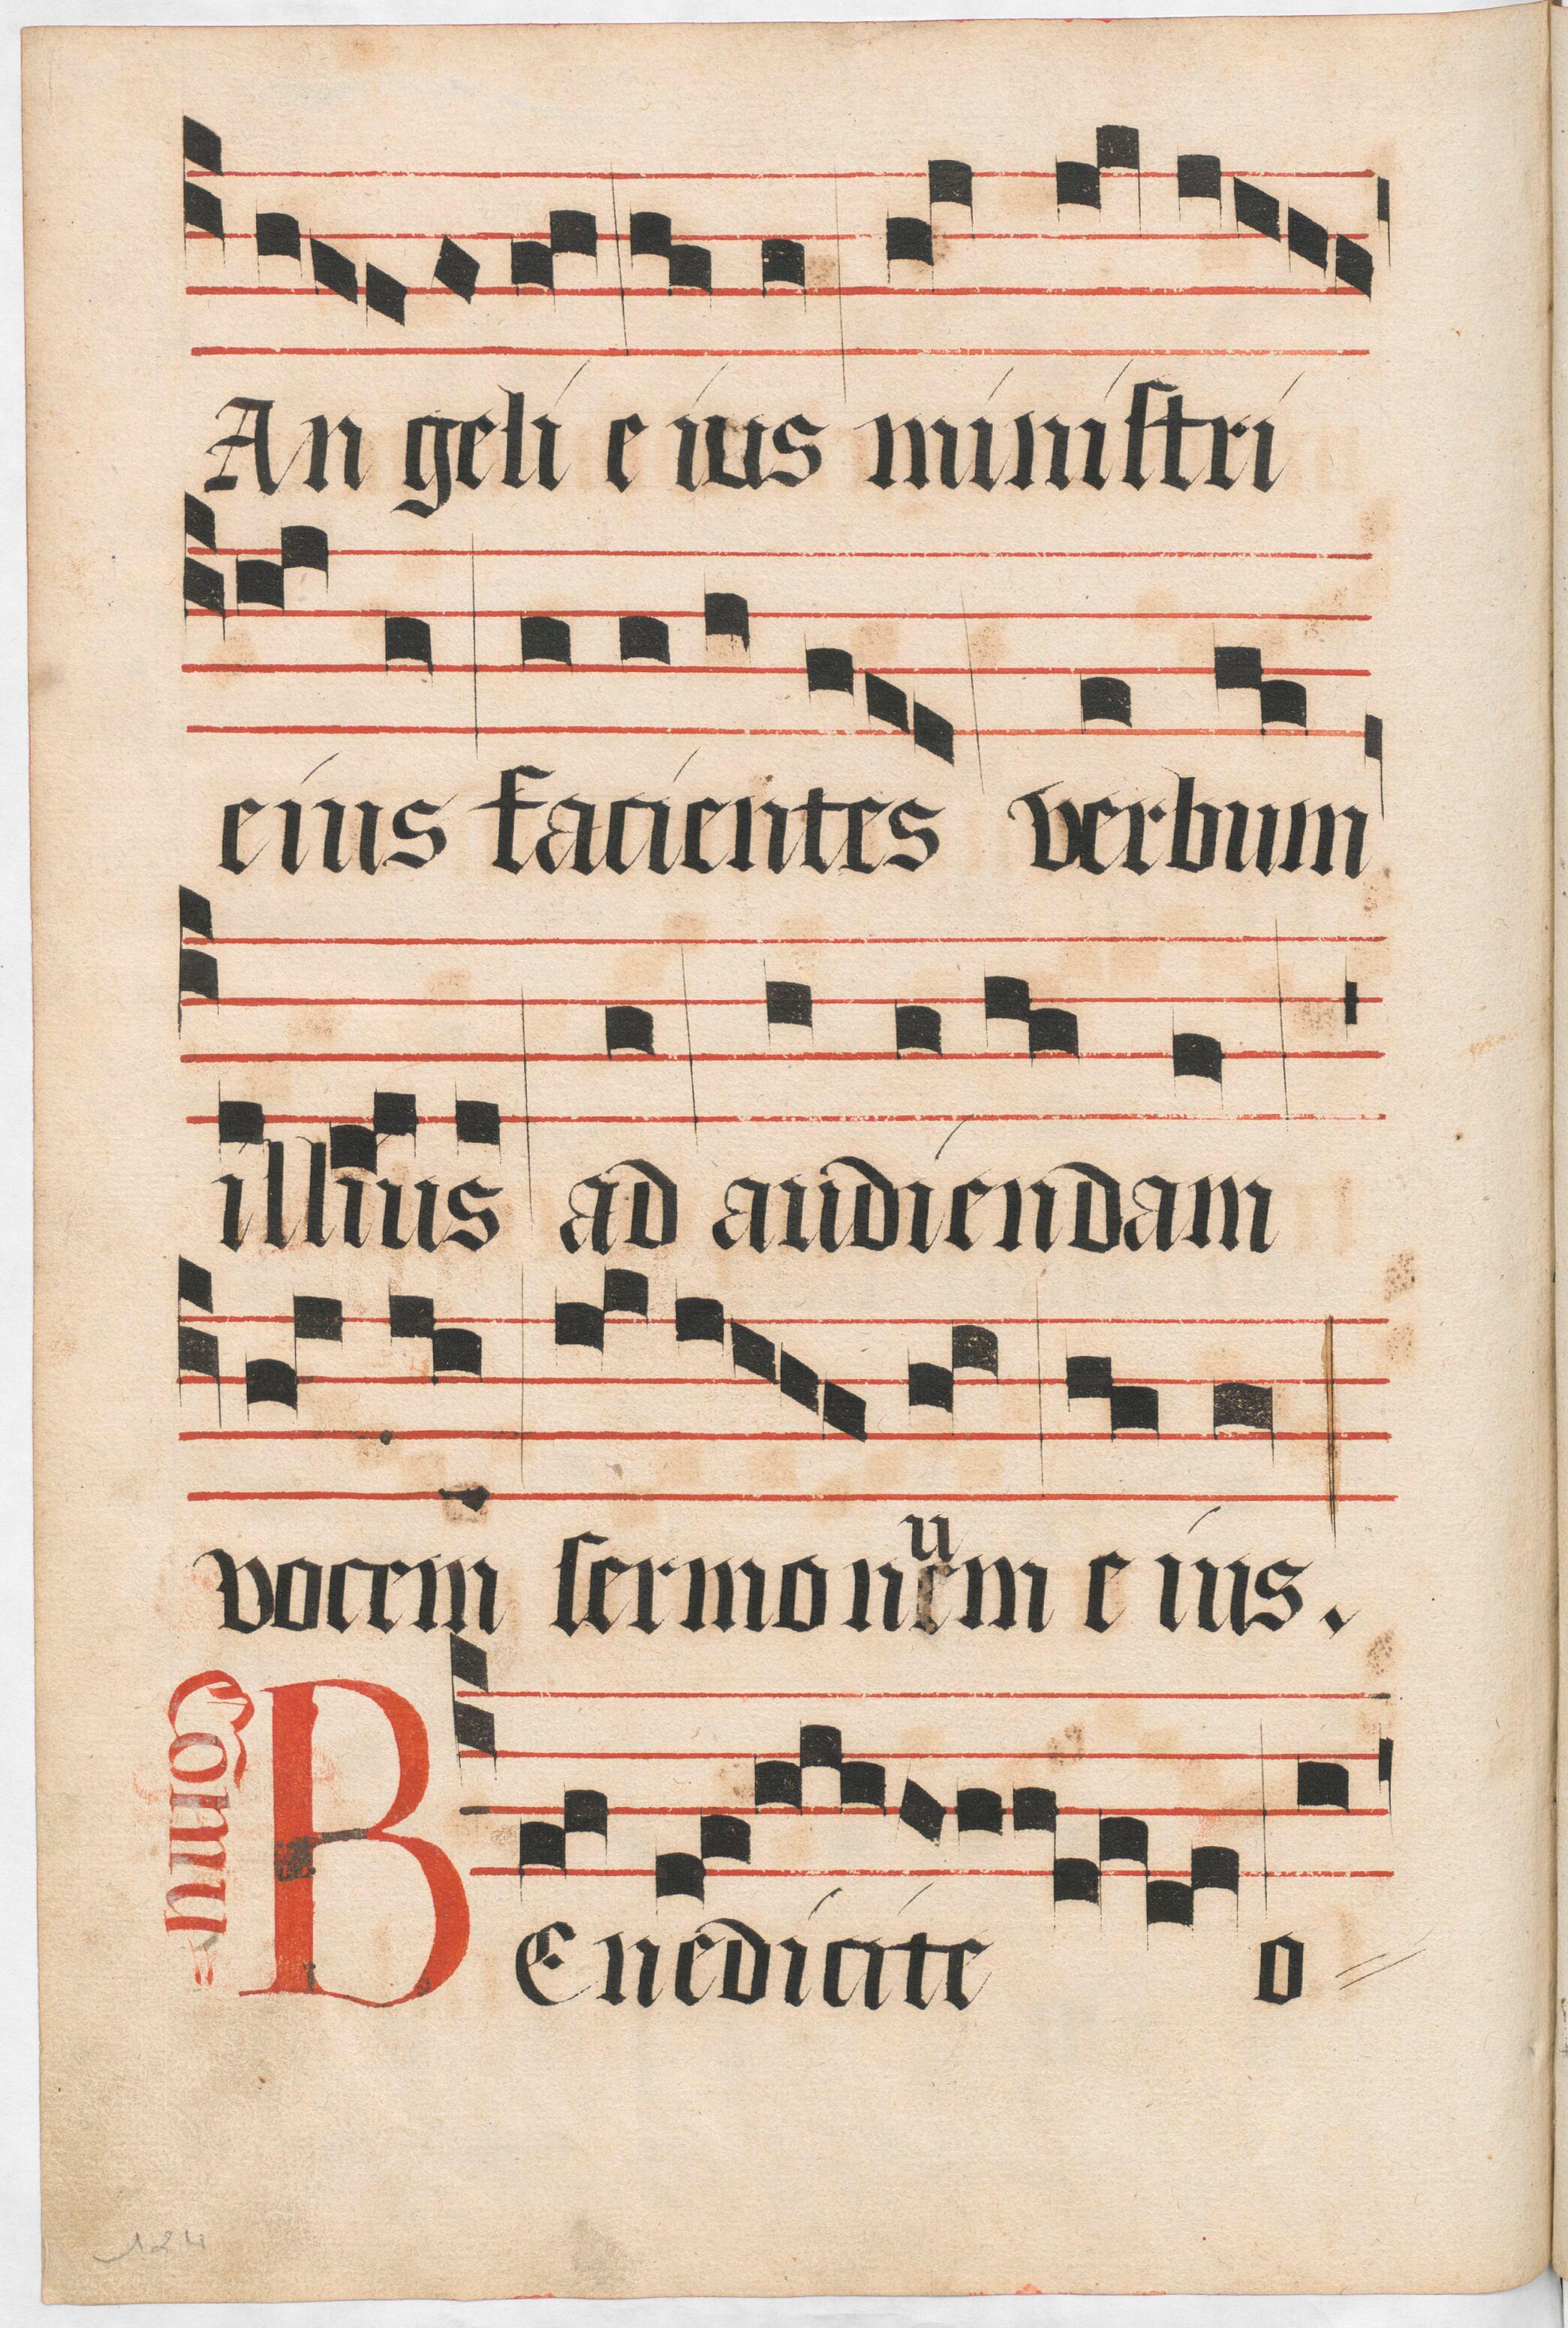 An geli e ius miniſtri
eius facientes verbum
illius ad audiendam
vocem ſermonum e ius.
Comu=
BEnedicite o=
124